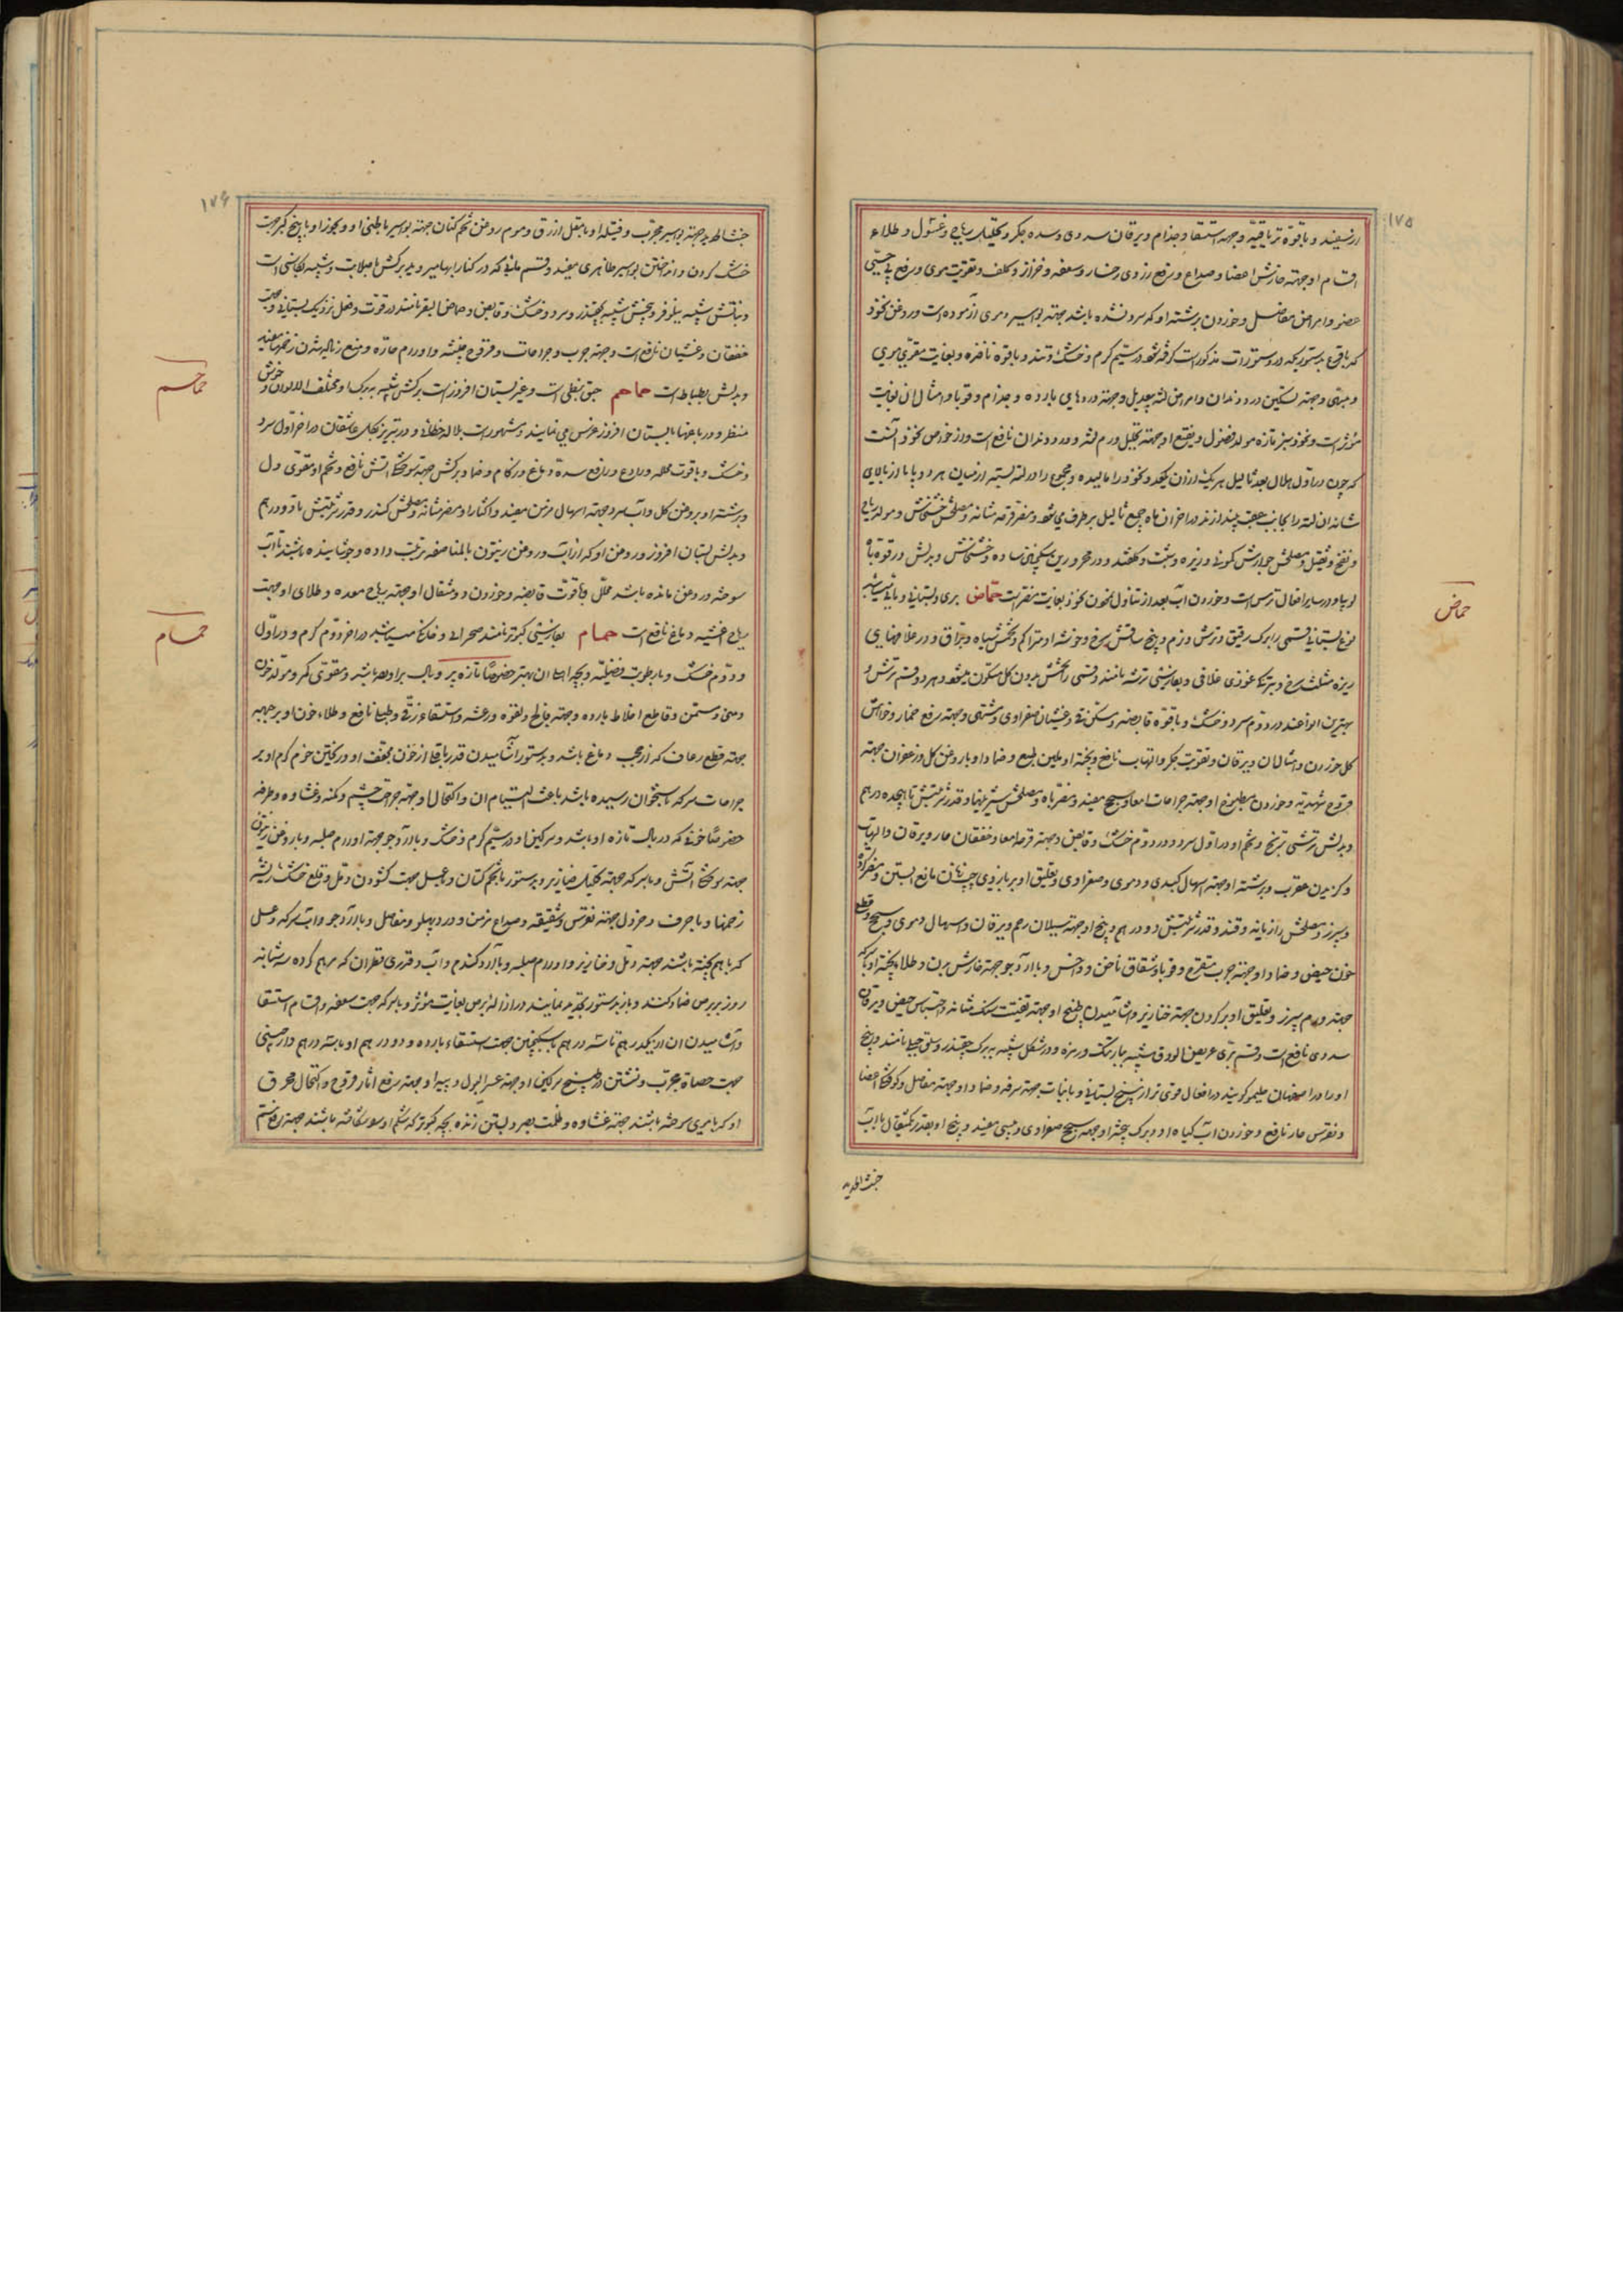 ۱۷۵
ارنسیفند و باقوة تریاقیه و جهة استسقا و جذام و یرقان سددی و سده جکر و تحلیل ریاح و غسول و طلاء
اقسام او جهته خارش اعضا و صداع و رفع زردی رخسار و سعفه و خزاز و کلف و تقویت موی و رفع
عضو و امراض مفاصل و خوردن برشته او که سرد نشده باشد جهته بواسیر دموی آزموده است و روغن نخود
که باقرع بدستوریکه در دستورات مذکور است کرفته شود در سیم کرم و خشک و تند و باقوة نافذه و بغایت مقوی موی
و مبهی و جهته تسکین درد دندان و امراض لثه بیعدیل و جهته دردهای بارده و جذام و قوبا و امثال ان بغایت
مؤثر است و نخود سبز تازه مولد فضول و نقیع او جهته تحلیل ورم لثه و درد دندان نافع است و از خواص نخود آنست
که چون در اول هلال بعدد ثالیل هر یک ازان یکعدد نخود را مالیده و مجموع را در لته بسته از میان هر دو پا یا از بالای
شانه ان لته را بجانب عقب بیندازند در اخر ان ماه جمیع ثالیل برطرف می شود و مضر قرحه مثانه و مصلحش خشخاش و مولد ریاح
و نفخ و ثقیل و مصلحش جوارش کمونی و زیره و شبت و کلقند و در محرورین سکنجبین ساده و خشخاش و بدلش در قوة باه
لوبیا و در سایر افعال ترمس است و خوردن آب بعد از تناول نخود بغایت مضر است حماض بری و بستانی و مائی میباشد
نوع بستانی قسمی را برک رقیق و ترش و نرم و بیخ ساقش سرخ و خوشه او متراکم و تخمش سیاه و براق و در غلافهای
ریزه مثلث سرخ
بهترین انواعند در دوم سرد و خشک و باقوة قابضه و مسکن قی و غشیان صفراوی و تشنگی و جهته رفع خمار و خواهش
کل خوردن و امثال ان و یرقان و تقویت جکر و التهاب نافع و پخته او ملین طبع و ضماد او با روغن کل و زعفران جهته
قروح شهدیه و خوردن مطبوخ او جهته جراحات امعا و سحج مفید و مضر باه و مصلحش شیرینیها و قدر شربتش تا هیجده درهم
و بدلش ترشی ترنج و تخم او در اول سرد و در دوم خشک و قابض و جهته قرحه امعا و خفقان حار و یرقان و التهاب
و کزیدن عقرب و برشته او جهته اسهال کبدی و دموی و صفراوی و تعلیق او بر بازوی چپ زنان مانع ابستن و مضر کرده
و سپرز و مصلحش رازیانه و قند و قدر شربتش دو درهم و بیخ او جهته سیلان رحم و یرقان و اسهال دموی و سحج و قطع
خون حیض و ضماد او جهته جرب متقرح و قوبا و شقاق ناخن و داخس و با آرد جو جهته خارش بدن و طلاء پخته او با سرکه
جهته ورم سپرز و تعلیق او بر کردن جهته خنازیر و آشامیدن طبیخ او جهته تفتیت سنک مثانه و احتباس حیض و یرقان
سددی نافع است و قسم بری عریض الورق شبیه ببارتنک و در مزه و در شکل شبیه به برک چقندر و سلق جبلی نامند و بیخ
او را در اصفهان حلیمو کویند در افعال قوی تر از بیخ بستانی و با نبات جهته سرفه و ضماد او جهته مفاصل و کوفتکی اعضا
و نقرس حار نافع و خوردن آب کیاه او و برک پخته او جهته سحج صفراوی و حبسی مفید و بیخ او بقدر یکمثقال با آب
خبث الحدید
حماض
۱۷۶
خبث الحدید جهته بواسیر مجرب و فتیله او با مقل ازرق و موم روغن تخم کتان جهته بواسیر باطنی او و بخور او با بیخ کبر جهت
خشک کردن و انداختن بواسیر ظاهری مفید و قسم مائی که در کنار ابها میروید برکش با صلابت و شبیه بکاسنی است
و نباتش شبیه بنیلوفر و بیخش شبیه بچقندر و سرد و خشک و قابض و حماض البقر نامند در قوت و فعل نزدیک ببستانی و جهت
خفقان و غشیان نافع است و جهته جرب و جراحات و قروح خبیثه و اورام حاره و منع زیاد شدن زخمها مفید
و بدلش بطباط است حماحم حبق نبطی است و غیر بستان افروز است برکش شبیه به برک او و مختلف الالوان و خوش
منظر و در باغها با بستان افروز غرس می نمایند و مشهور است بلاله خطائی و در تبریز بکل عاشقان در اخر اول سرد
و خشک و باقوت محلله و رادع و رافع سده دماغ و زکام و ضماد برکش جهته سوختکی اتش نافع و تخم او مقوی دل
و برشته او بروغن کل و آب سرد جهته اسهال مزمن مفید و اکثار او مضر مثانه و مصلحش کندر و قدر شربتش تا دو درهم
و بدلش بستان افروز و روغن او که از آب و روغن زیتون بالمناصفه ترتیب داده و جوشانیده باشند تا آب
سوخته و روغن مانده باشد محلل و باقوت قابضه و خوردن دو مثقال او جهته ریاح معده و طلای او جهت
ریاح اغشیه دماغ نافع است حمام بفارسی کبوتر نامند صحرائی و خانکی میباشد در اخر دوم کرم و در اول
و دوم خشک و با رطوبت فضلیه و بچه او بهتر خصوصا تازه پر و بال براورده باشد و مقوی کرده و مولد خون
و منی و مسمن و قاطع اخلاط بارده و جهته فالج و لقوه و رعشه و استسقاء زقی و طبلی نافع و طلاء خون او بر جبهه
جهته قطع رعاف که از حجب دماغ باشد و بدستور آشامیدن قدر باقلا از خون مجفف او و ریختن خون کرم او بر
جراحات سر که باستخوان رسیده باشد باعث التیام ان و اکتحال او جهته جراحت چشم و کمنه و غشاوه و طرفه
خصوصا خونی که در بال تازه او باشد و سرکین او در سیم کرم و خشک و با آرد جو جهته اورام صلبه و با روغن زیتون
جهته سوختکی آتش و با سرکه جهته تحلیل خنازیر و بدستور با تخم کتان و عسل جهت کشودن دمل و قلع خشک ریشه
زخمها و با حرف و خردل جهته نقرس و شقیقه و صداع مزمن و درد پهلو و مفاصل و با آرد جو و آب سرکه و عسل
که با هم پخته باشند جهته دمل و خنازیر و اورام صلبه و با آرد کندم و آب و قدری قطران که مرهم کرده سه شبانه
روز بر برص ضماد کنند و باز بدستور تجدید نمایند در ازاله برص بغایت مؤثر و با سرکه جهت سعفه و اقسام استسقا
و آشامیدن ان از یکدرهم تا سه درهم با سکنجبین جهت استسقاء بارده و دو درهم او با سه درهم دارچینی
جهت حصاة مجرب و نشستن در طبیخ سرکین او جهته عسر البول و پیه او جهته رفع اثار قروح و اکتحال محرق
او که با موی سوخته باشند جهته غشاوه و ظلمت بصر و بستن زنده بچه کبوتر که شکم او شکافته باشند جهته رفع سم
حماحم
حمام